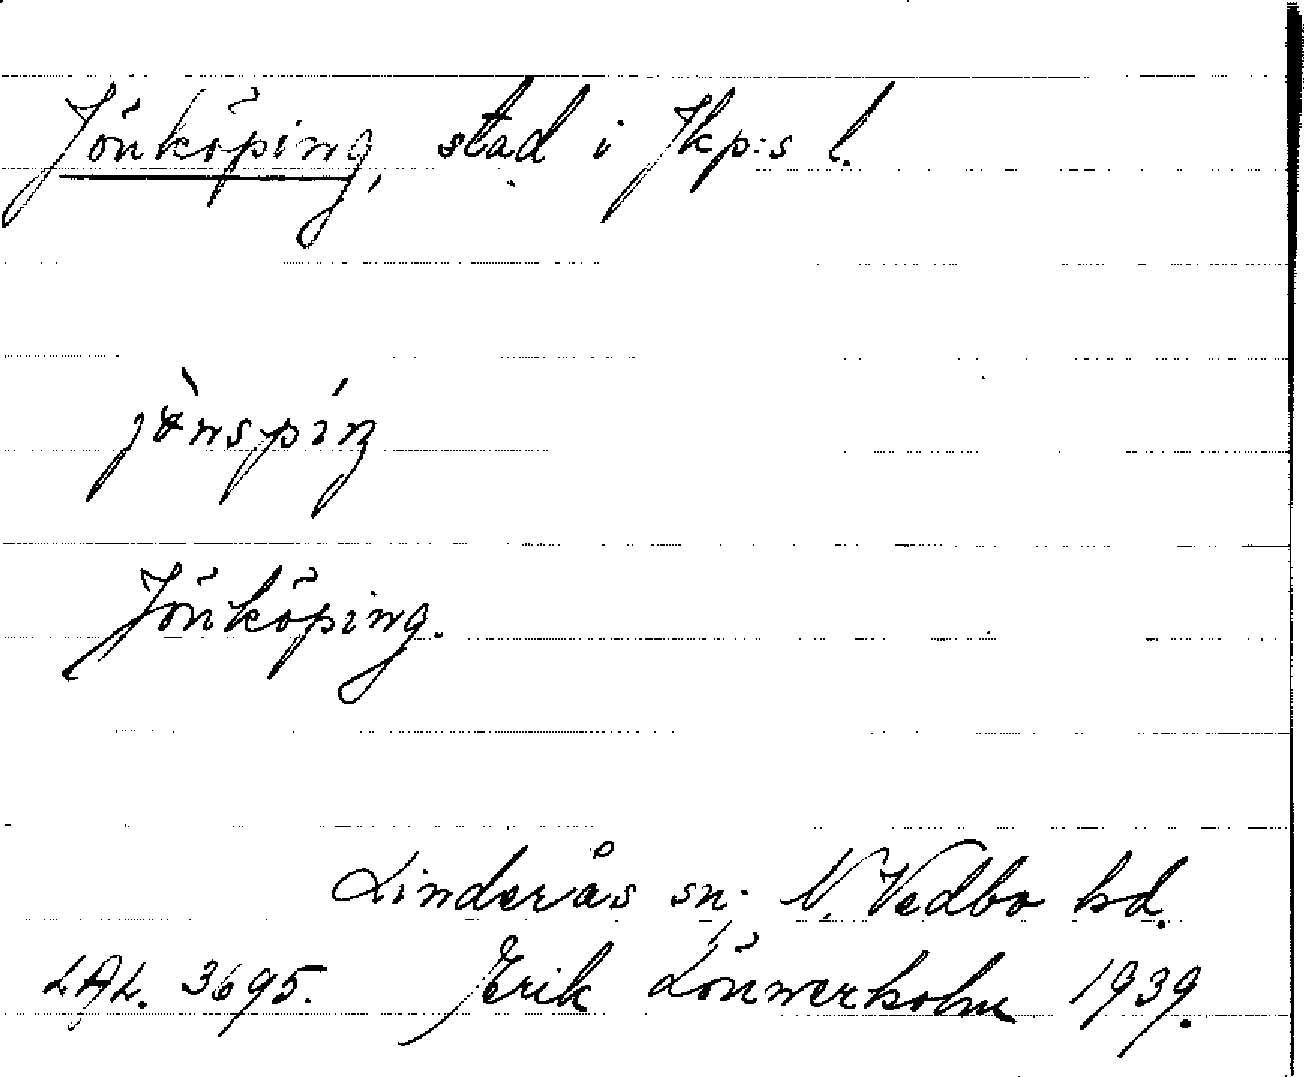 Jönköping, stad i Jkp:s l.
jö̀nspíŋ
Jönköping.
Linderås sn. N. Vedbo hd.
LAL. 3695. Erik Lönnerholm 1939.